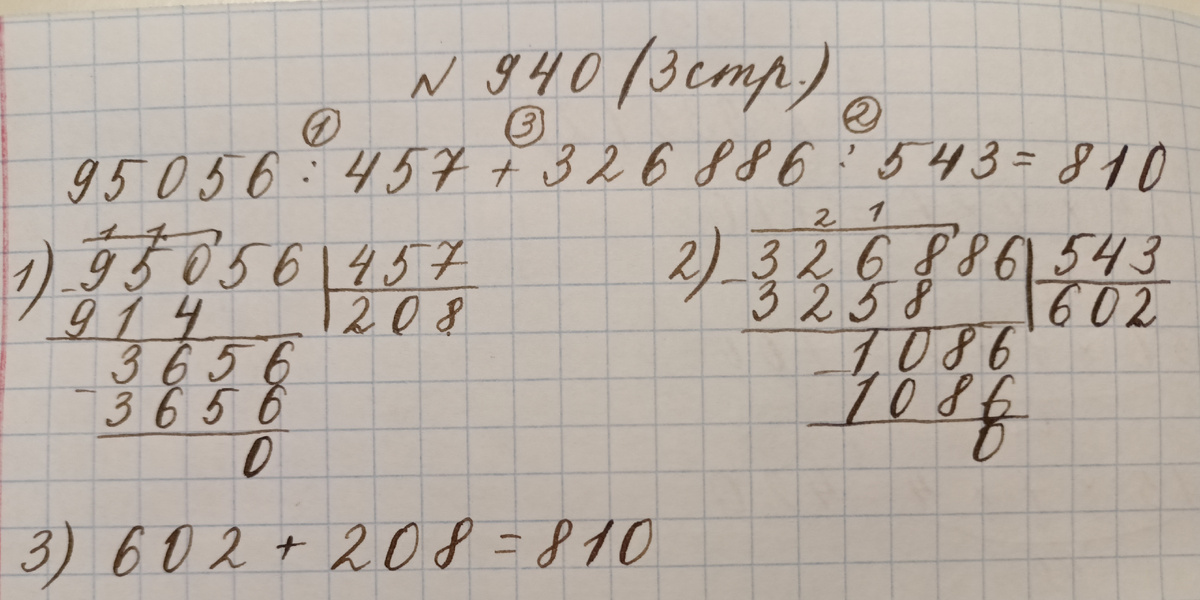 N 940 (3 стр.)
① ③ ②
95056 : 457 + 326886 : 543 = 810
1) 1 1
- 95056 | 457
914 | 208
3656
- 3656
0
2) 2 1
- 326886 | 543
3258 | 602
- 1086
1086
0
3) 602 + 208 = 810